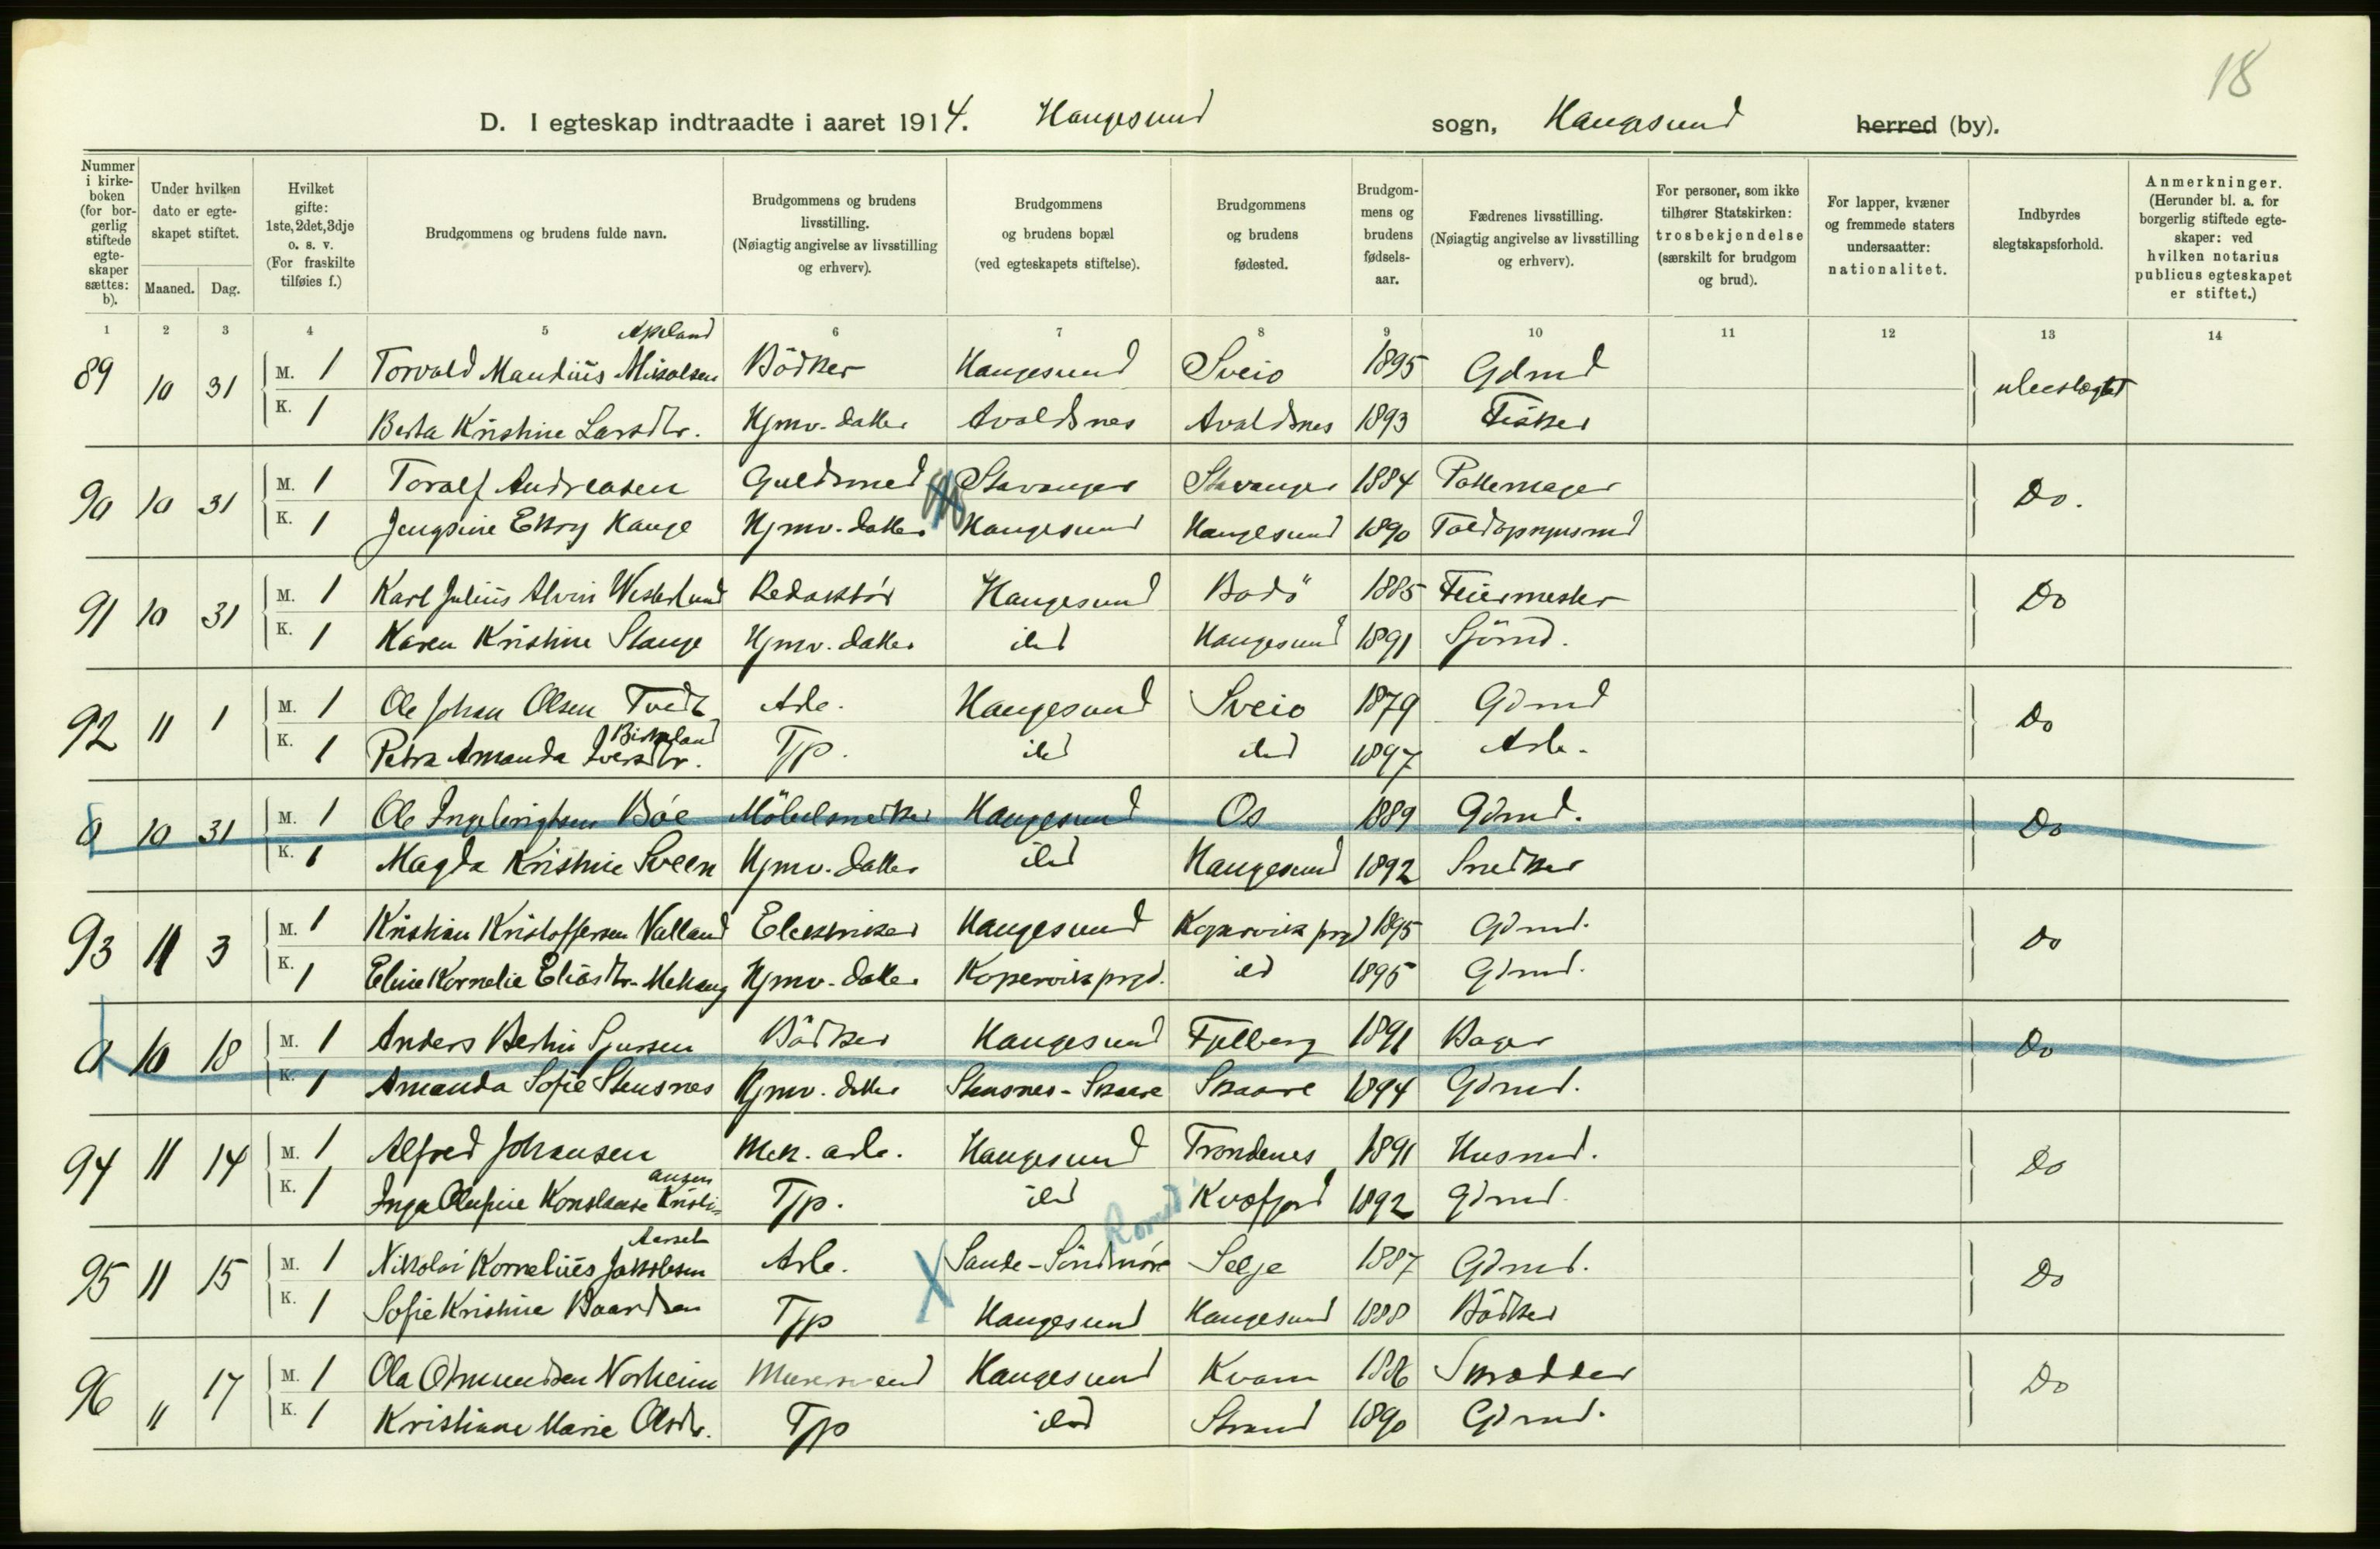 18
D. I egteskap indtraadte i aaret 1914. Haugesund sogn, Haugesund herred (by).
Nummer i kirke-boken (for bor-gerlig stiftede egte-skaper sættes: b).
Under hvilken dato er egte-skapet stiftet.
Maaned. Dag.
Hvilket gifte: 1ste, 2det, 3dje o. s. v. (For fraskilte tilføies f.)
Brudgommens og brudens fulde navn.
Brudgommens og brudens livsstilling. (Nøiagtig angivelse av livsstilling og erhverv).
Brudgommens og brudens bopæl (ved egteskapets stiftelse).
Brudgommens og brudens fødested.
Brudgom-mens og brudens fødsels-aar.
Fædrenes livsstilling. (Nøiagtig angivelse av livsstilling og erhverv).
For personer, som ikke tilhører Statskirken: trosbekjendelse (særskilt for brudgom og brud).
For lapper, kvæner og fremmede staters undersaatter: nationalitet.
Indbyrdes slegtskapsforhold.
Anmerkninger. (Herunder bl. a. for borgerlig stiftede egte-skaper: ved hvilken notarius publicus egteskapet er stiftet.)
1 2 3 4 5 6 7 8 9 10 11 12 13 14
Apeland
89 10 31 M. 1 Torvald Mandius Mikalsen Bödker Haugesund Sveio 1895 Gdmd ubeslægtet
K. 1 Berta Kristine Larsdtr. Hjmv. datter Avaldsnes Avaldsnes 1893 Fisker
90 10 31 M. 1 Toralf Andreasen Guldsmed Stavanger Stavanger 1884 Pottemager Do.
K. 1 Jengsine Elisy Hauge Hjmv. datter Haugesund Haugesund 1890 Toldopsynsmd
91 10 31 M. 1 Karl Julius Alvin Westerlund Redaktör Haugesund Bodö 1885 Feiermester Do
K. 1 Karen Kristine Stange Hjmv. datter ibd Haugesund 1891 Sjömd.
92 11 1 M. 1 Ole Johan Olsen Tvedt Arb. Haugesund Sveio 1879 Gdmd Do
Birkeland
K. 1 Petra Amanda Iversdtr. Tjp. ibd ibd 1897 Arb.
0 10 31 M. 1 Ole Ingebrigtsen Böe Möbelsnedker Haugesund Os 1889 Gdmd. Do
K. 1 Magda Kristine Sveen Hjmv. datter ibd Haugesund 1892 Snedker
93 11 3 M. 1 Kristian Kristoffersen Valland Elektriker Haugesund Kopervik prgd 1895 Gdmd. Do
K. 1 Eline Kornelie Eliasdtr. Mehaug Hjmv. datter Kopervik prgd. ibd 1895 Gdmd.
0 10 18 M. 1 Anders Bertin Sjursen Bödker Haugesund Fjelberg 1891 Bager Do
K. 1 Amanda Sofie Stensnes Hjmv. datter Stensnes - Skaare Skaare 1894 Gdmd.
94 11 14 M. 1 Alfred Johansen Mek. arb. Haugesund Trondenes 1891 Husmd. Do
ansen
K. 1 Inga Olufine Konstanse Kristi- Tjp. ibd Kvæfjord 1892 Gdmd.
Aarseth Romsd
95 11 15 M. 1 Nikolai Kornelius Jakobsen Arb. Sande - Söndmöre Selje 1887 Gdmd. Do
K. 1 Sofie Kristine Baardsen Tjp Haugesund Haugesund 1888 Bödker
96 11 17 M. 1 Ola Omundsen Norheim Murersvend Haugesund Kvam 1886 Skrædder Do
K. 1 Kristiane Marie Olsdtr. Tjp ibd Strand 1890 Gdmd.